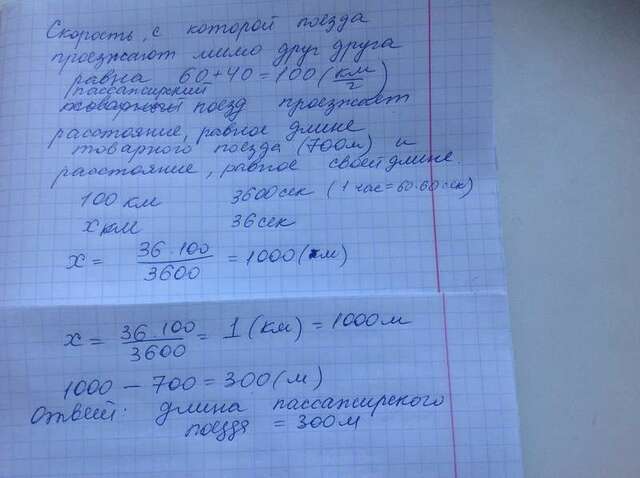 Скорость, с которой поезда
проезжают мимо друг друга
равна 60+40=100 (км/г)
пассажирский
товарный поезд проезжает
расстояние, равное длине
товарного поезда (700м) и
расстояние, равное своей длине.
100 км 3600 сек (1 час=60·60 сек)
x км 36 сек
x = 36·100/3600 = 1000 (м)
x = 36·100/3600 = 1 (км) = 1000 м
1000 – 700 = 300 (м)
Ответ: длина пассажирского
поезда = 300 м